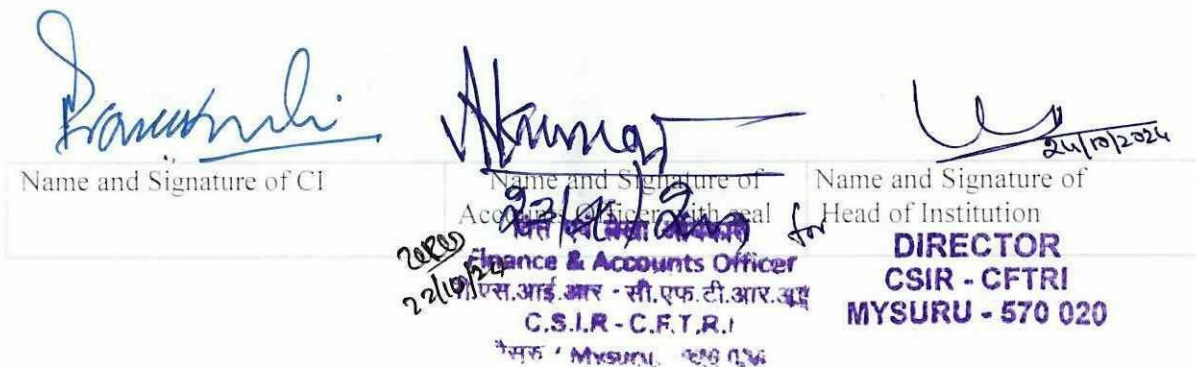 24/10/2024
Name and Signature of CI
Name and Signature of
Accounts Officer with seal
Name and Signature of
Head of Institution
22/10/24
Finance & Accounts Officer
सी.एस.आई.आर - सी.एफ.टी.आर.आई
C.S.I.R - C.F.T.R.I
Mysuru
for
DIRECTOR
CSIR - CFTRI
MYSURU - 570 020